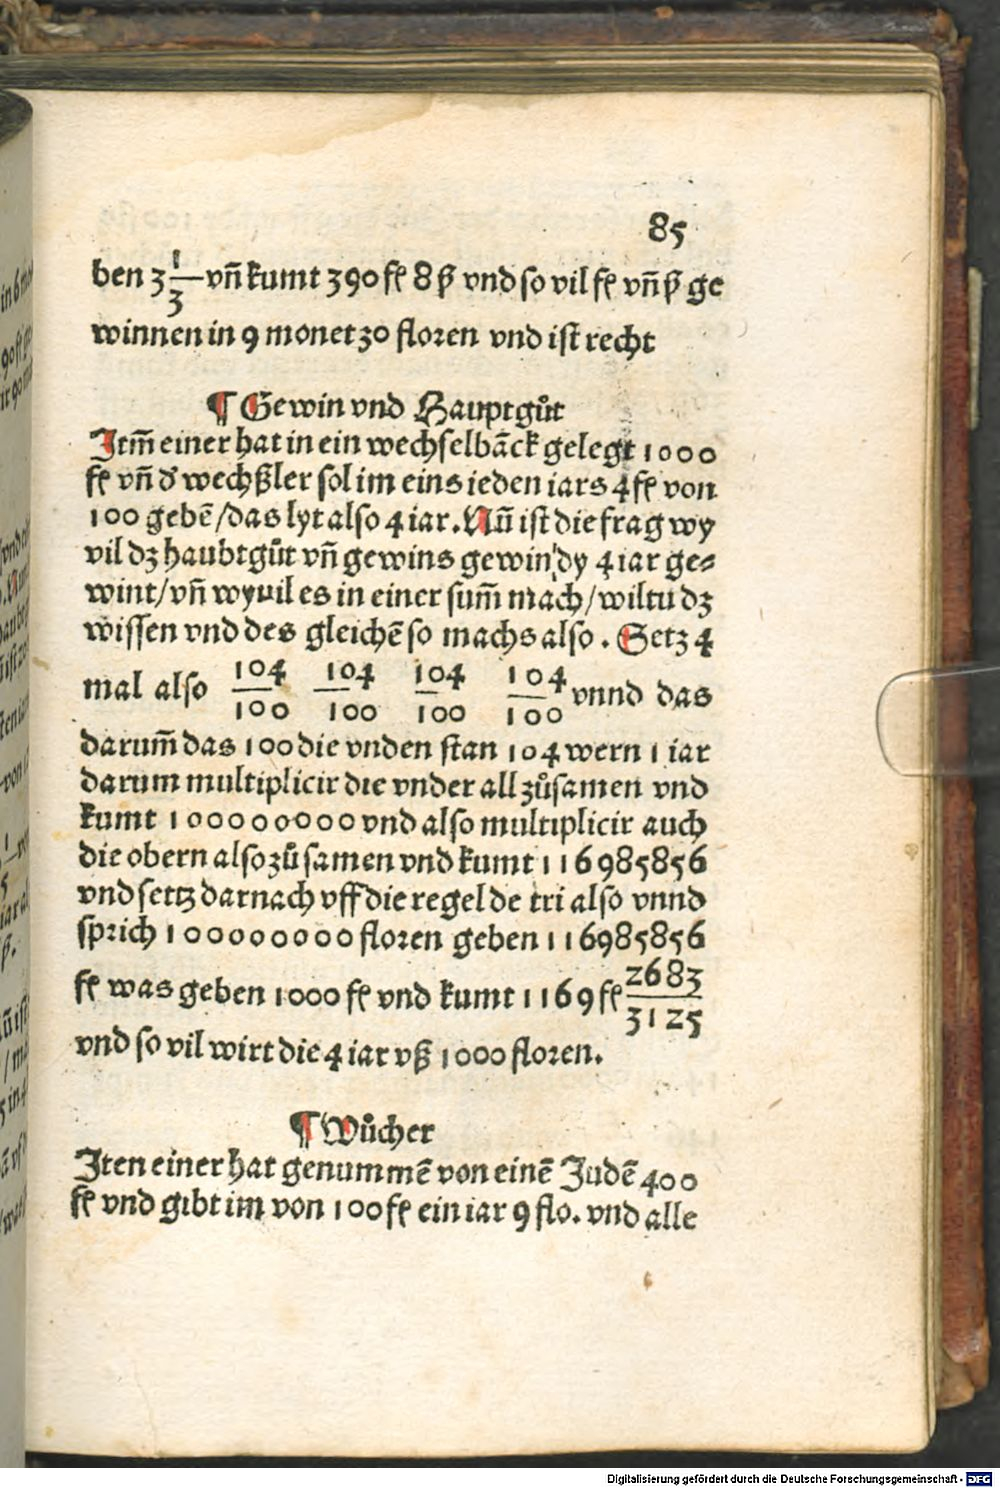 85
ben 3 1/3 vñ kumt 390 fl 8 ß vnd so vil fl vñ ß ge
winnen in 9 monet 30 floren vnd ist recht
¶ Gewin vnd Hauptgůt
Itm̄ einer hat in ein wechselbāck gelegt 1000
fl vñ d' wechßler sol im eins ieden iars 4 fl von
100 gebē/das lyt also 4 iar. Nū ist die frag wy
vil dz haubtgůt vñ gewins gewin dy 4 iar ge⸗
wint/vñ wyuil es in einer sum̄ mach/wiltu dz
wissen vnd des gleichē so machs also. Setz 4
mal also 104/100 104/100 104/100 104/100 vnnd das
darum̄ das 100 die vnden stan 104 wern 1 iar
darum multiplicir die vnder all zůsamen vnd
kumt 100000000 vnd also multiplicir auch
die obern also zů samen vnd kumt 116985856
vnd settz darnach vff die regel de tri also vnnd
sprich 100000000 floren geben 116985856
fl was geben 1000 fl vnd kumt 1169 fl 2683/3125
vnd so vil wirt die 4 iar vß 1000 floren.
¶ Wůcher
Iten einer hat genummē von einē Judē 400
fl vnd gibt im von 100 fl ein iar 9 flo. vnd alle
Digitalisierung gefördert durch die Deutsche Forschungsgemeinschaft - DFG